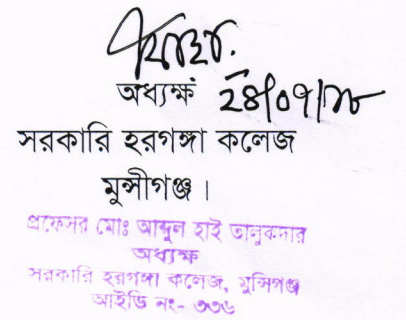 অধ্যক্ষ ২৪/০৭/১৮
সরকারি হরগঙ্গা কলেজ
মুন্সীগঞ্জ ।
প্রফেসর মোঃ আব্দুল হাই তালুকদার
অধ্যক্ষ
সরকারি হরগঙ্গা কলেজ, মুন্সিগঞ্জ
আইডি নং- ৩৩৬